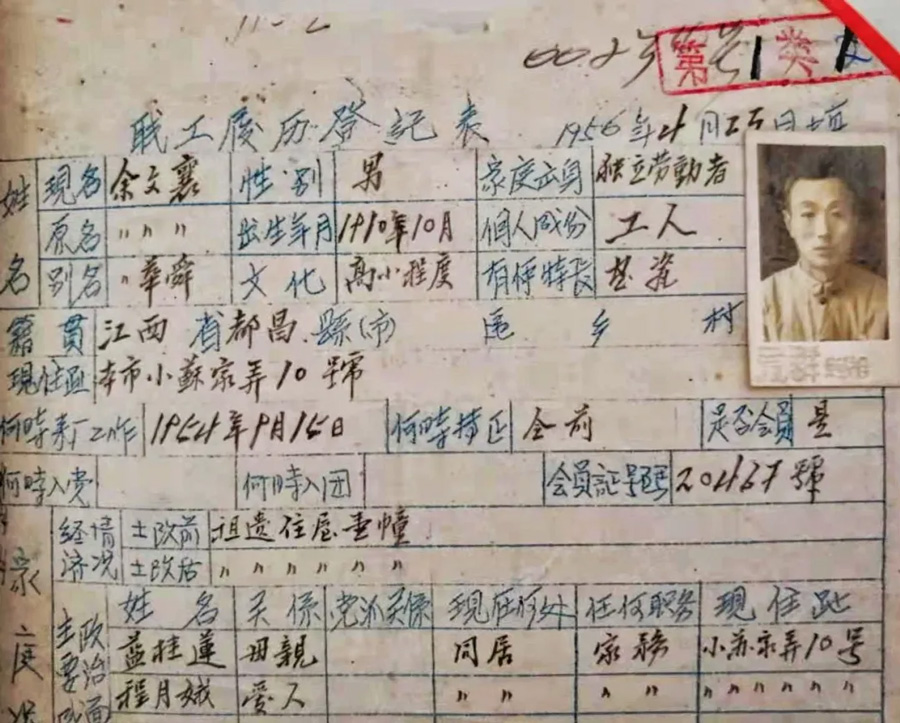 11-2
002号
第1类
职工履历登记表 1956年4月25日填
姓名 現名 余文襄 性别 男 家庭出身 独立劳動者
原名 〃 〃 〃 出生年月 1910年10月 個人成份 工人
别名 〃華舜 文化 高小程度 有何特长
籍貫 江西省都昌縣(市) 區 乡 村
現住址 本市小蘇家弄10號
何時来厂工作 1954年9月15日 何時转正 仝前 是否会員 是
何時入党 何時入团 会員証号码 號
家庭 经济情况 土改前 祖遗住屋壹幢
土改后 〃 〃 〃 〃 〃 〃
主要 政治 姓名 关係 党派关係 現在何处 任何职务 現住址
桂蓮 母親 同居 家務 小苏家弄10号
程月娥 爱人 〃 〃 〃 〃 〃 〃 〃 〃 〃 〃